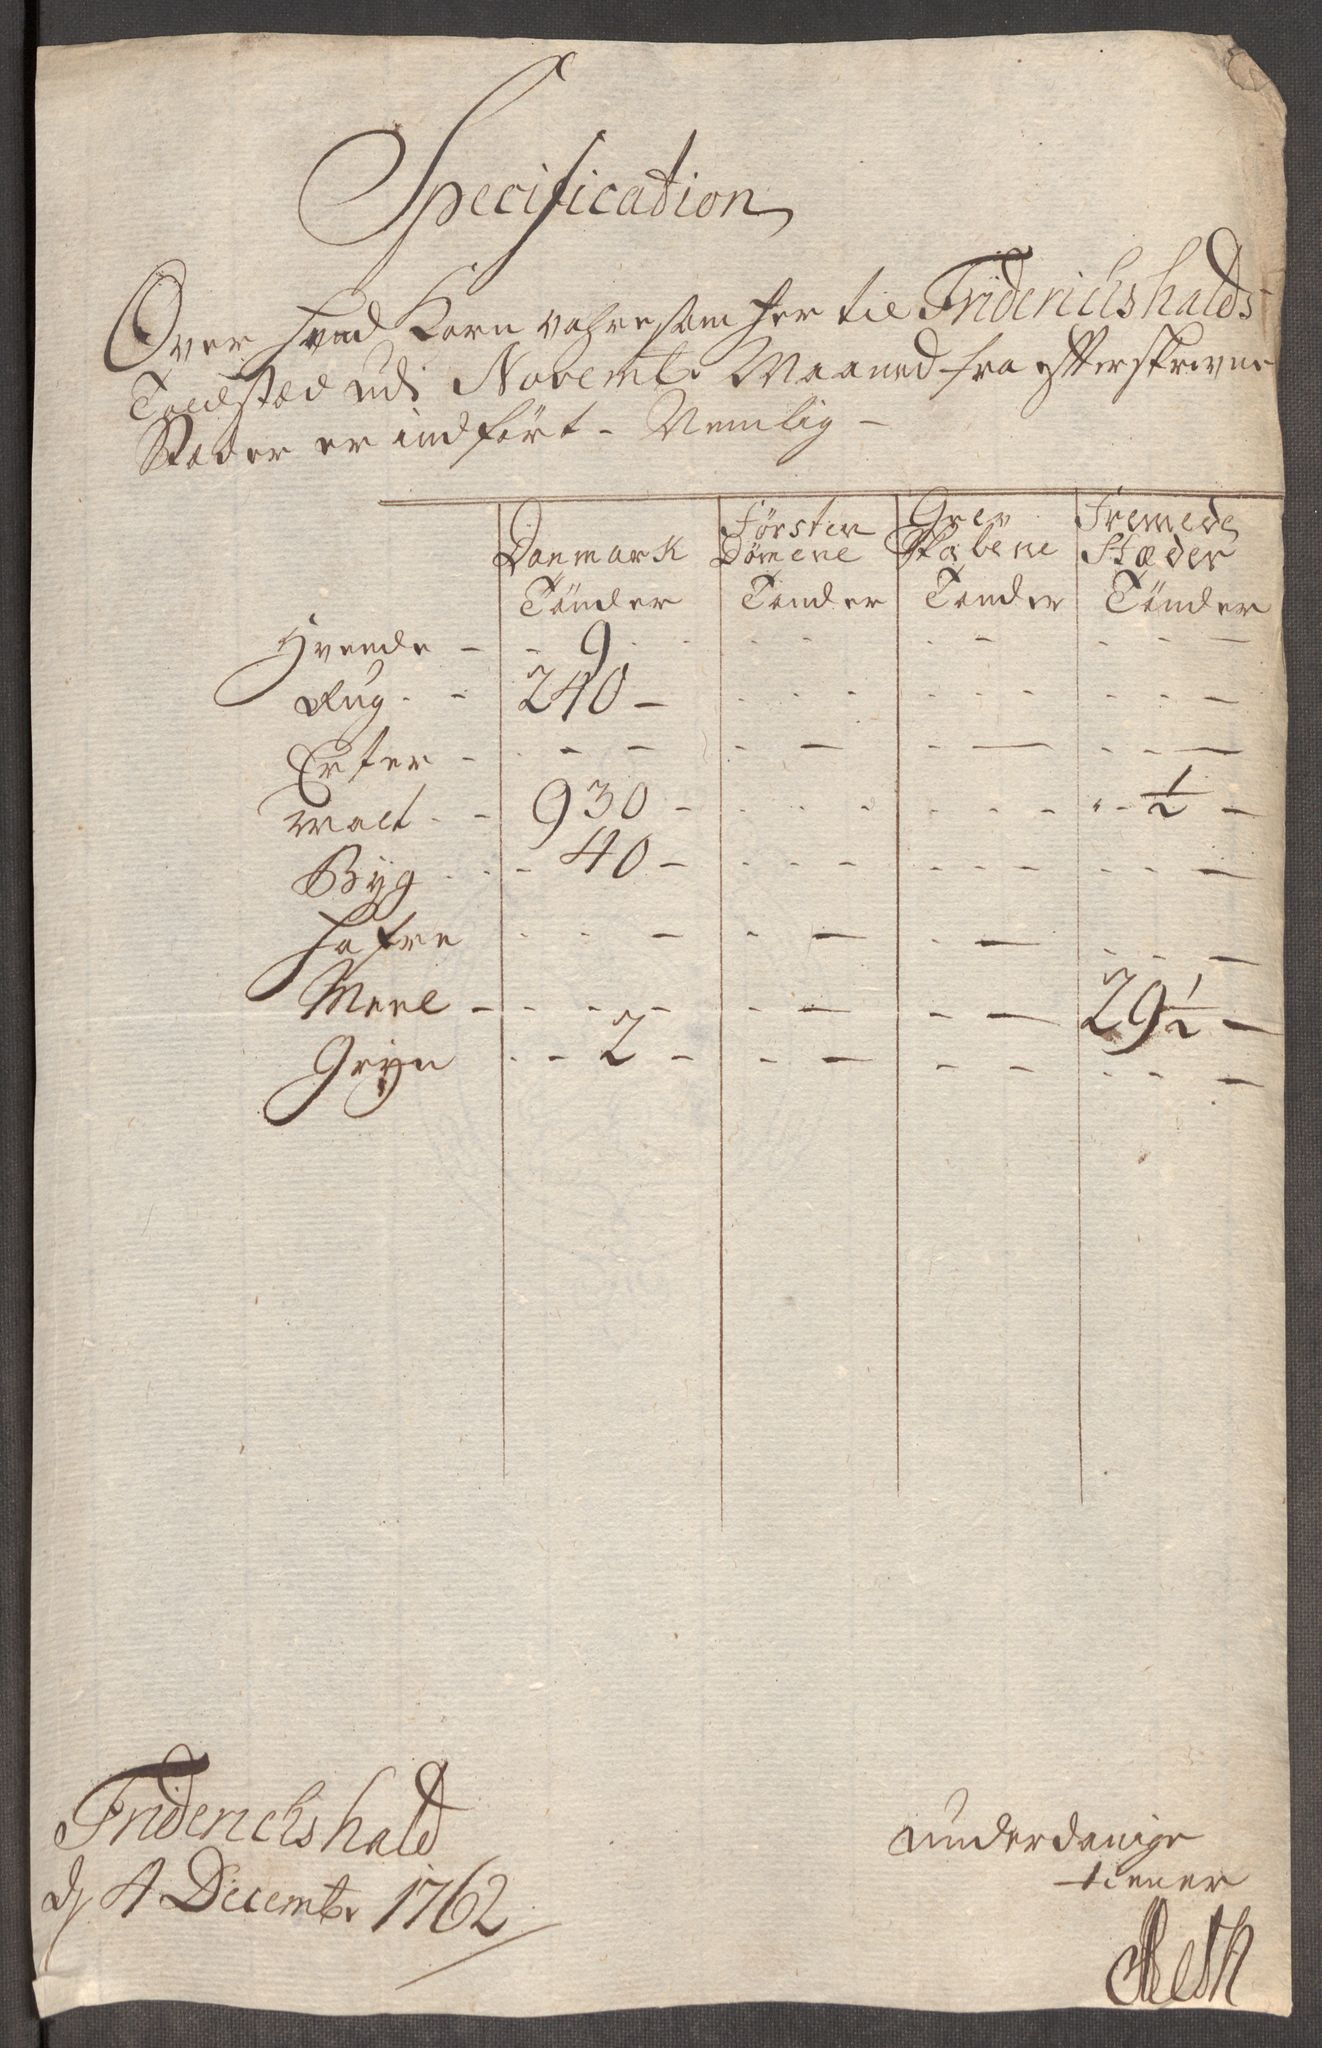 Specification
Over hvad Korn vahre som her til Friderichshalds
Toldsted udi Novembr Maaned fra efterskrevne
Stæder er indført - Nemlig -
Danmark Førsten Dømene Grev Skabene Fremede Stæder
Tönder Tönder Tönder Tönder
Hvede - - 9 - - -
Rug - - 240 - - - -
Erter - - - - -
Malt - - 930 - - - 1/2 -
Byg - - 40 - - - -
Hafre - - - -
Meel - - - - 29 1/2 -
Gryn - - 2 - - - -
Friderichshald
d 4 Decembr 1762
underdanige
tiener